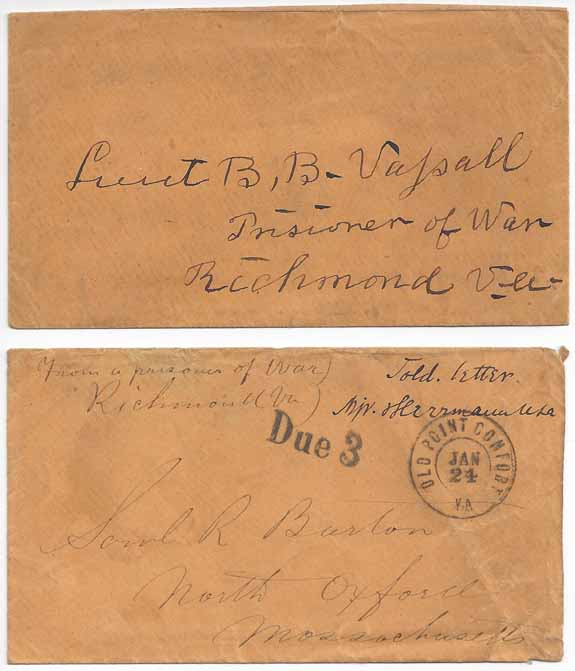 Lieut B, B- Vassall
Prisioner of War
Richmond Va
From a prisoner of War)
Richmond (Va)
Sold. letter.
Due 3
OLD POINT COMFORT
JAN
24
VA
Saml R Barton
North Oxford
Massachusetts